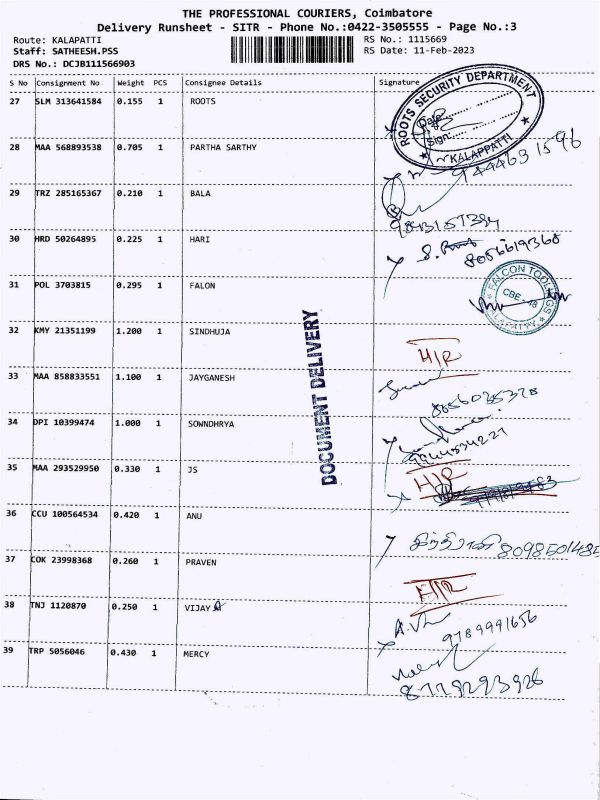 THE PROFESSIONAL COURIERS, Coimbatore
Delivery Runsheet - SITR - Phone No.:0422-3505555 - Page No.:3
Route: KALAPATTI RS No.: 1115669
Staff: SATHEESH.PSS RS Date: 11-Feb-2023
DRS No.: DCJB111566903
S No Consignment No Weight PCS Consignee Details Signature
27 SLM 313641584 0.155 1 ROOTS
ROOTS SECURITY DEPARTMENT
Date:
Sign:
KALAPPATTI
28 MAA 568893538 0.705 1 PARTHA SARTHY
9444631596
29 TRZ 285165367 0.210 1 BALA
30 HRD 50264895 0.225 1 HARI
8056619368
31 POL 3703815 0.295 1 FALON
FALCON TOOLINGS
CBE-48
32 KMY 21351199 1.200 1 SINDHUJA
H/R
33 MAA 858833551 1.100 1 JAYGANESH
34 DPI 10399474 1.000 1 SOWNDHRYA
DOCUMENT DELIVERY
35 MAA 293529950 0.330 1 JS
H/R
36 CCU 100564534 0.420 1 ANU
8098501485
37 COK 23998368 0.260 1 PRAVEN
38 TNJ 1120870 0.250 1 VIJAY
9789991656
39 TRP 5056046 0.430 1 MERCY